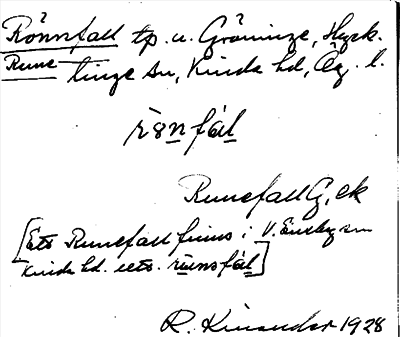 Rönnfall tp. u. Gröninge, Hyck-
Rune
linge sn, Kinda hd, Ög. l.
rönfal
Runefall G, ek
[Ett Runefall finns i V. Eneby sn
Kinda hd. uttr. runsfal]
R. Kinander 1928